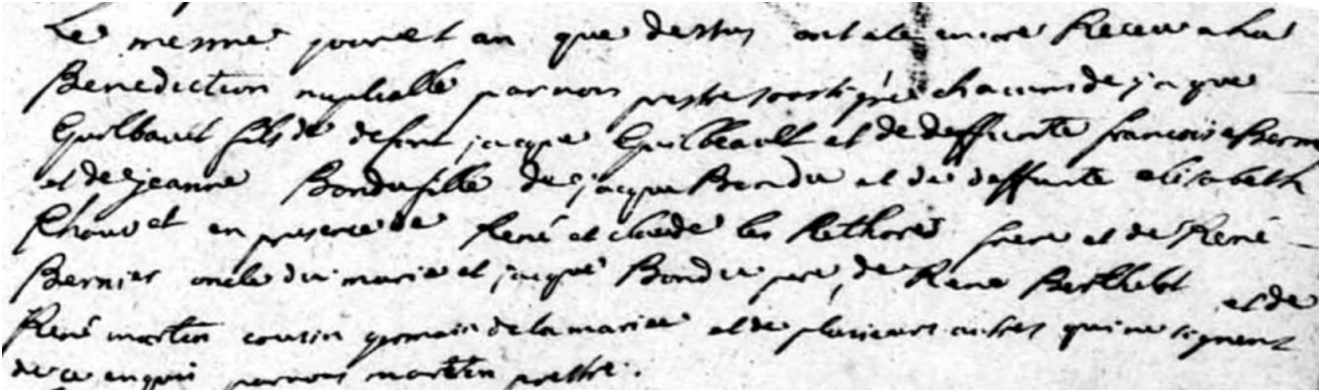 Le mesme jour et an que dessus ont été encore Receu a la
Benediction nuptialle par nous prestre soussigné chacuns de jaque
Guilbault fils de defunt jacque Guilbeault et de deffunte francoise Berni
et de jeanne Bondu fille de jacque Bondu et de deffunte elisabeth
Chauvet en presence de René et claude les Rethoré frere et de René
Bernier oncle du marié et jacque Bondu pere, de Rene Berthelot et de
René martin cousin germain de la mariee et de plusieurs autres qui ne signent
de ce enquis par nous martin prestre.